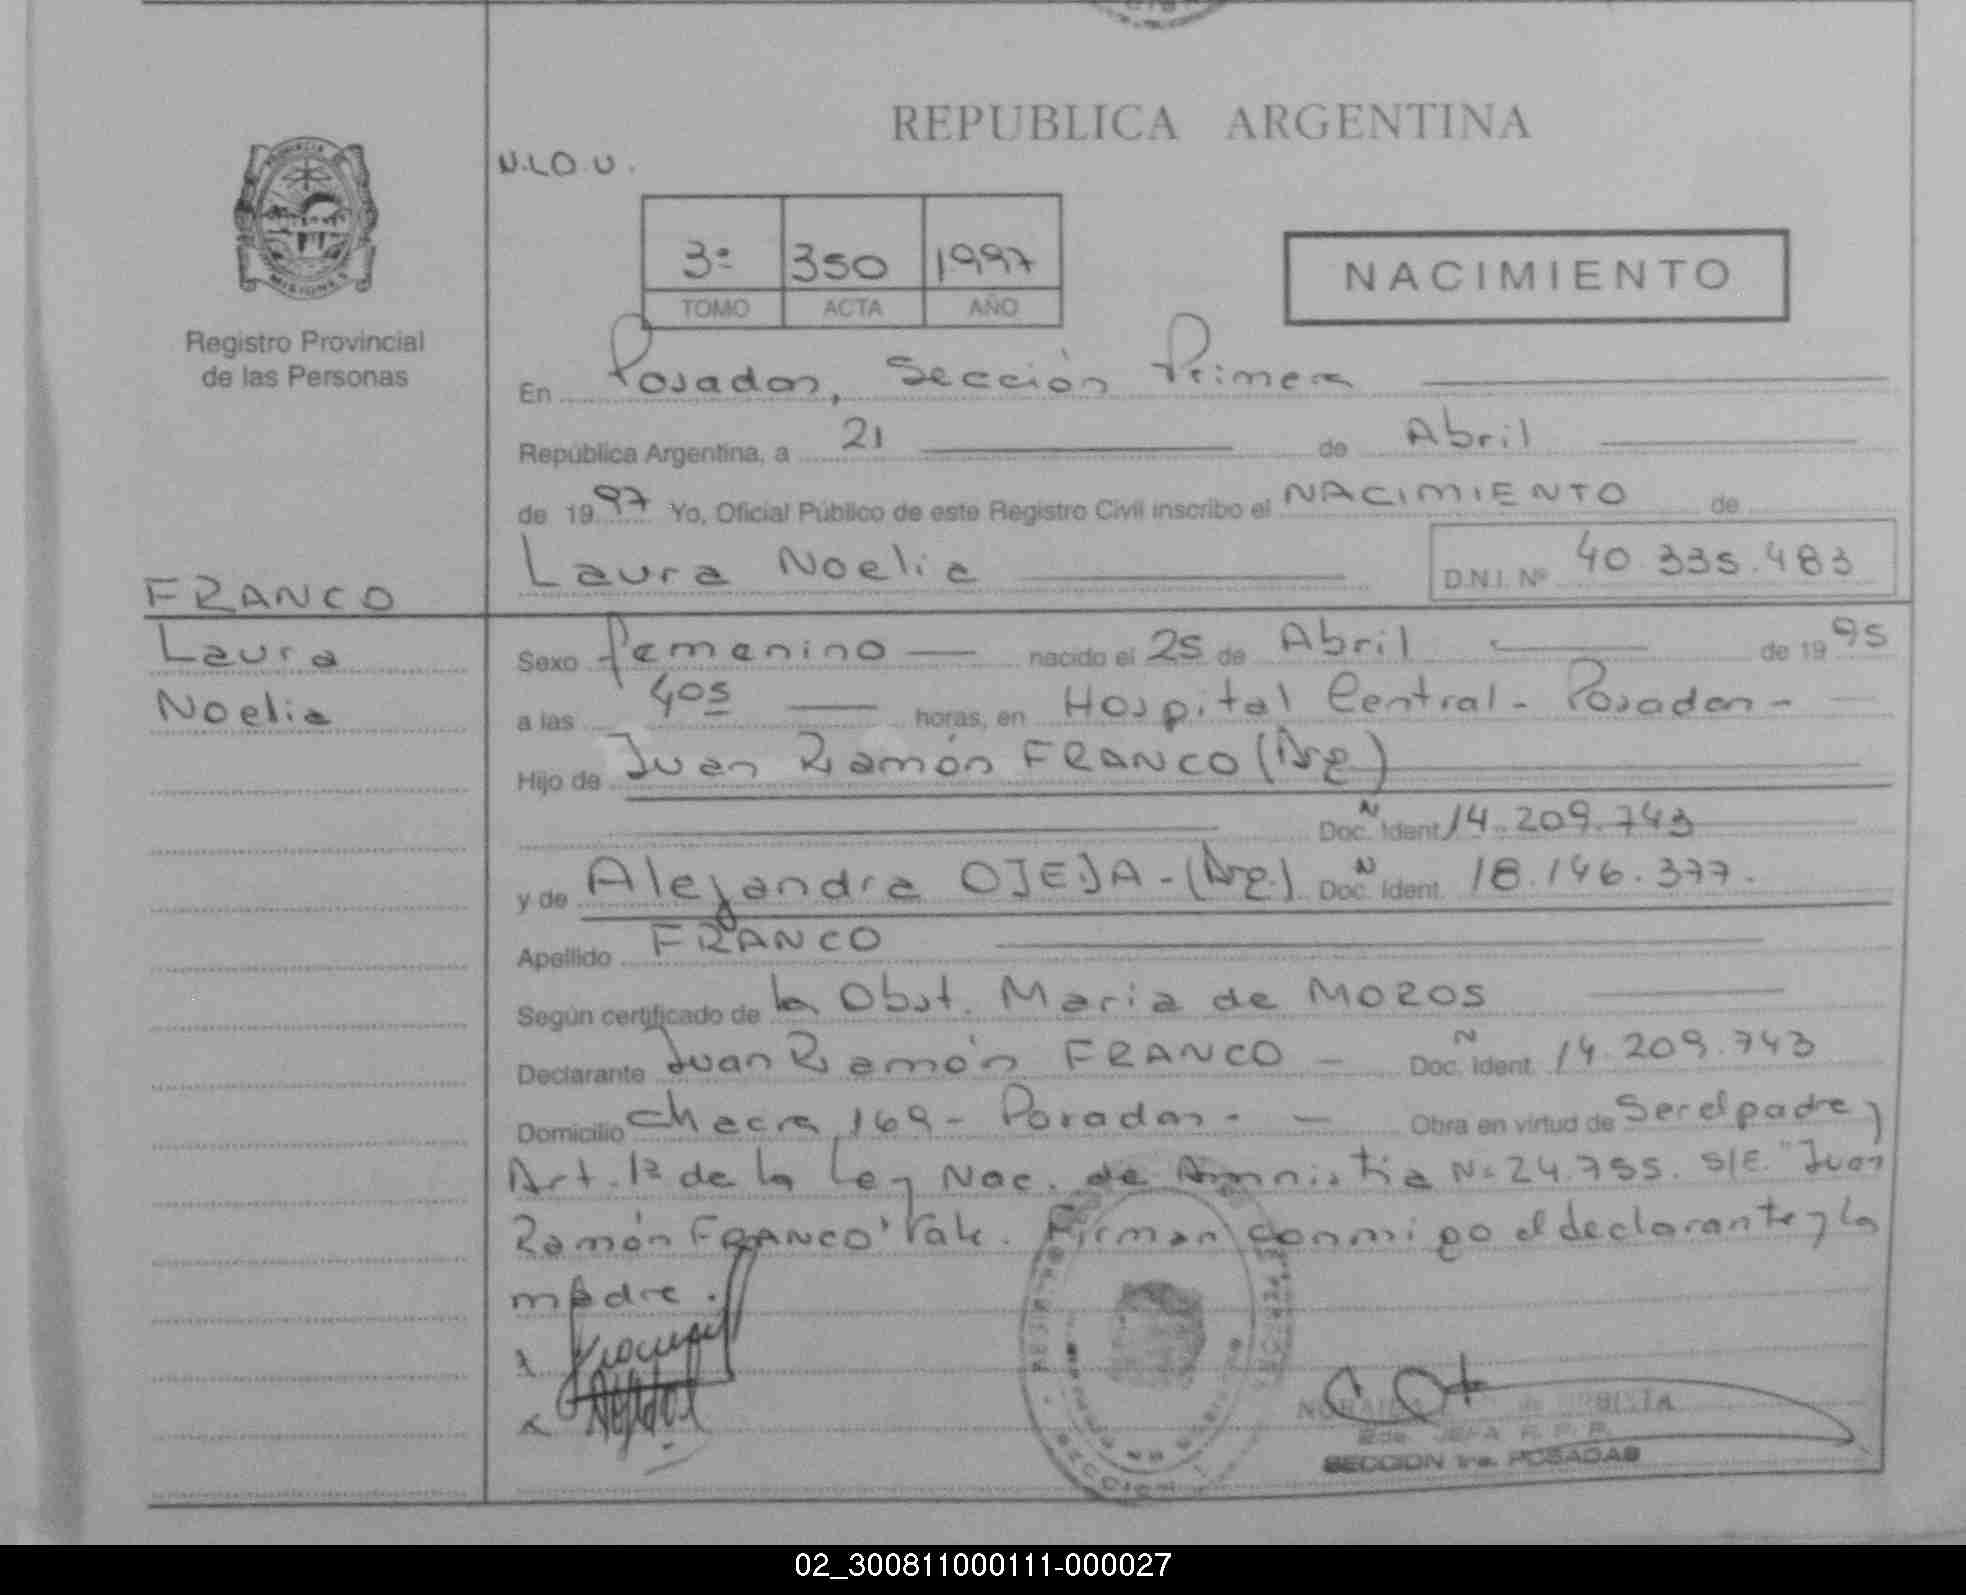 REPUBLICA ARGENTINA
N.LO.U.
3º 350 1997
TOMO ACTA AÑO
NACIMIENTO
MISIONES
Registro Provincial
de las Personas
En Posadas, Sección Primera
República Argentina, a 21 de Abril
de 1997 Yo, Oficial Público de este Registro Civil inscribo el NACIMIENTO de
Laura Noelia D.N.I. Nº 40.335.483
FRANCO
Laura
Noelia
Sexo femenino nacido el 25 de Abril de 1995
a las 405 horas, en Hospital Central - Posadas -
Hijo de Juan Ramón FRANCO (Arg)
Doc. Ident. N 14.209.743
y de Alejandra OJEDA - (Arg.) Doc. Ident. N 18.146.377.
Apellido FRANCO
Según certificado de la Obst. Maria de MOZOS
Declarante Juan Ramón FRANCO - Doc. Ident. N 14.209.743
Domicilio Chacra 169 - Posadas - Obra en virtud de Ser el padre y
Art. 1º de la Ley Nac. de Amnistia Nº 24.755. S/E. "Juan
Ramón FRANCO" Vale. Firman conmigo el declarante y la
madre.
x
x
JEFA R. P. P.
SECCION 1ra. POSADAS
02_300811000111-000027